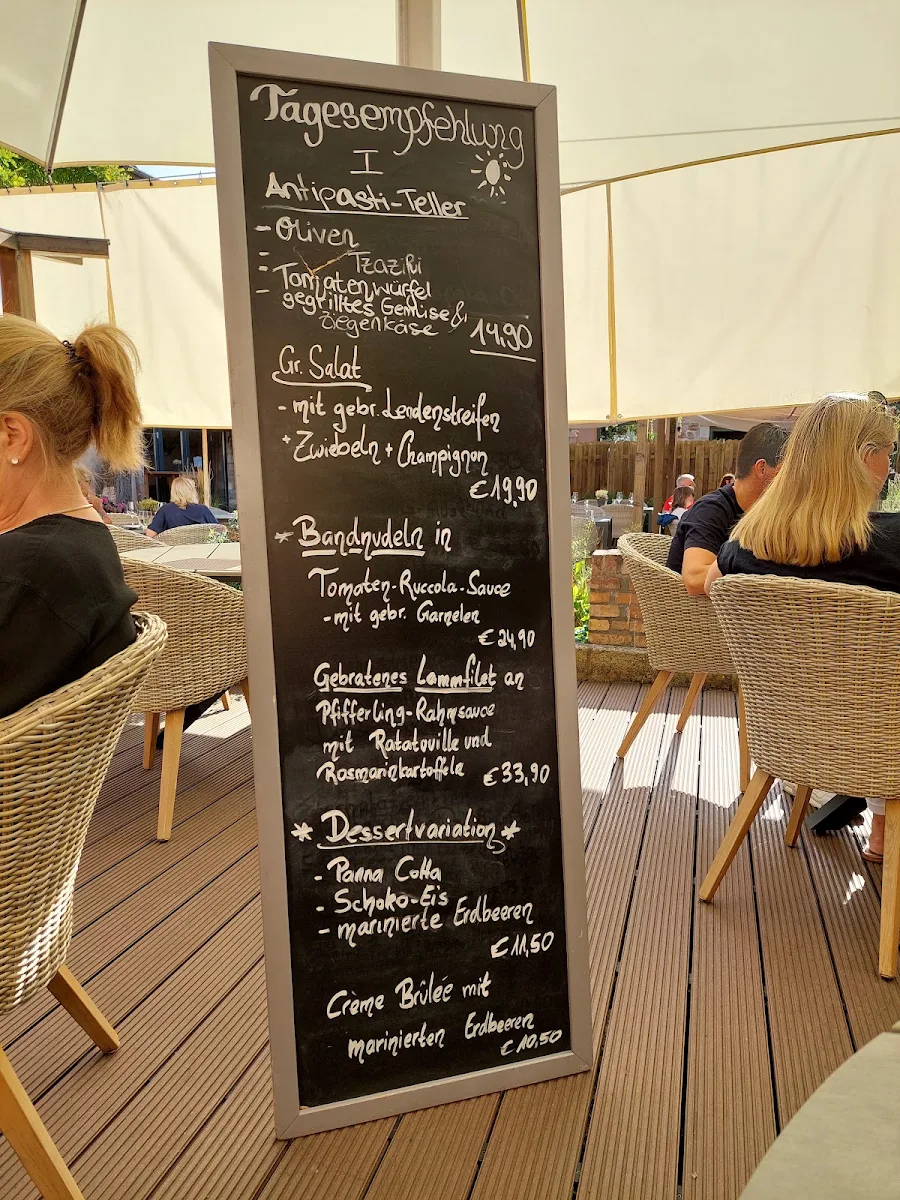 Tagesempfehlung
I
Antipasti-Teller
- Oliven
- Tzaziki
- Tomatenwürfel
- gegrilltes Gemüse &
Ziegenkäse 14,90
Gr. Salat
- mit gebr. Lendenstreifen
+ Zwiebeln + Champignon
€ 19,90
* Bandnudeln in
Tomaten-Ruccola-Sauce
- mit gebr. Garnelen
€ 24,90
Gebratenes Lammfilet an
Pfifferling-Rahmsauce
mit Ratatouille und
Rosmarinkartoffeln € 33,90
* Dessertvariation *
- Panna Cotta
- Schoko-Eis
- marinierte Erdbeeren
€ 11,50
Crème Brûlée mit
marinierten Erdbeeren
€ 10,50